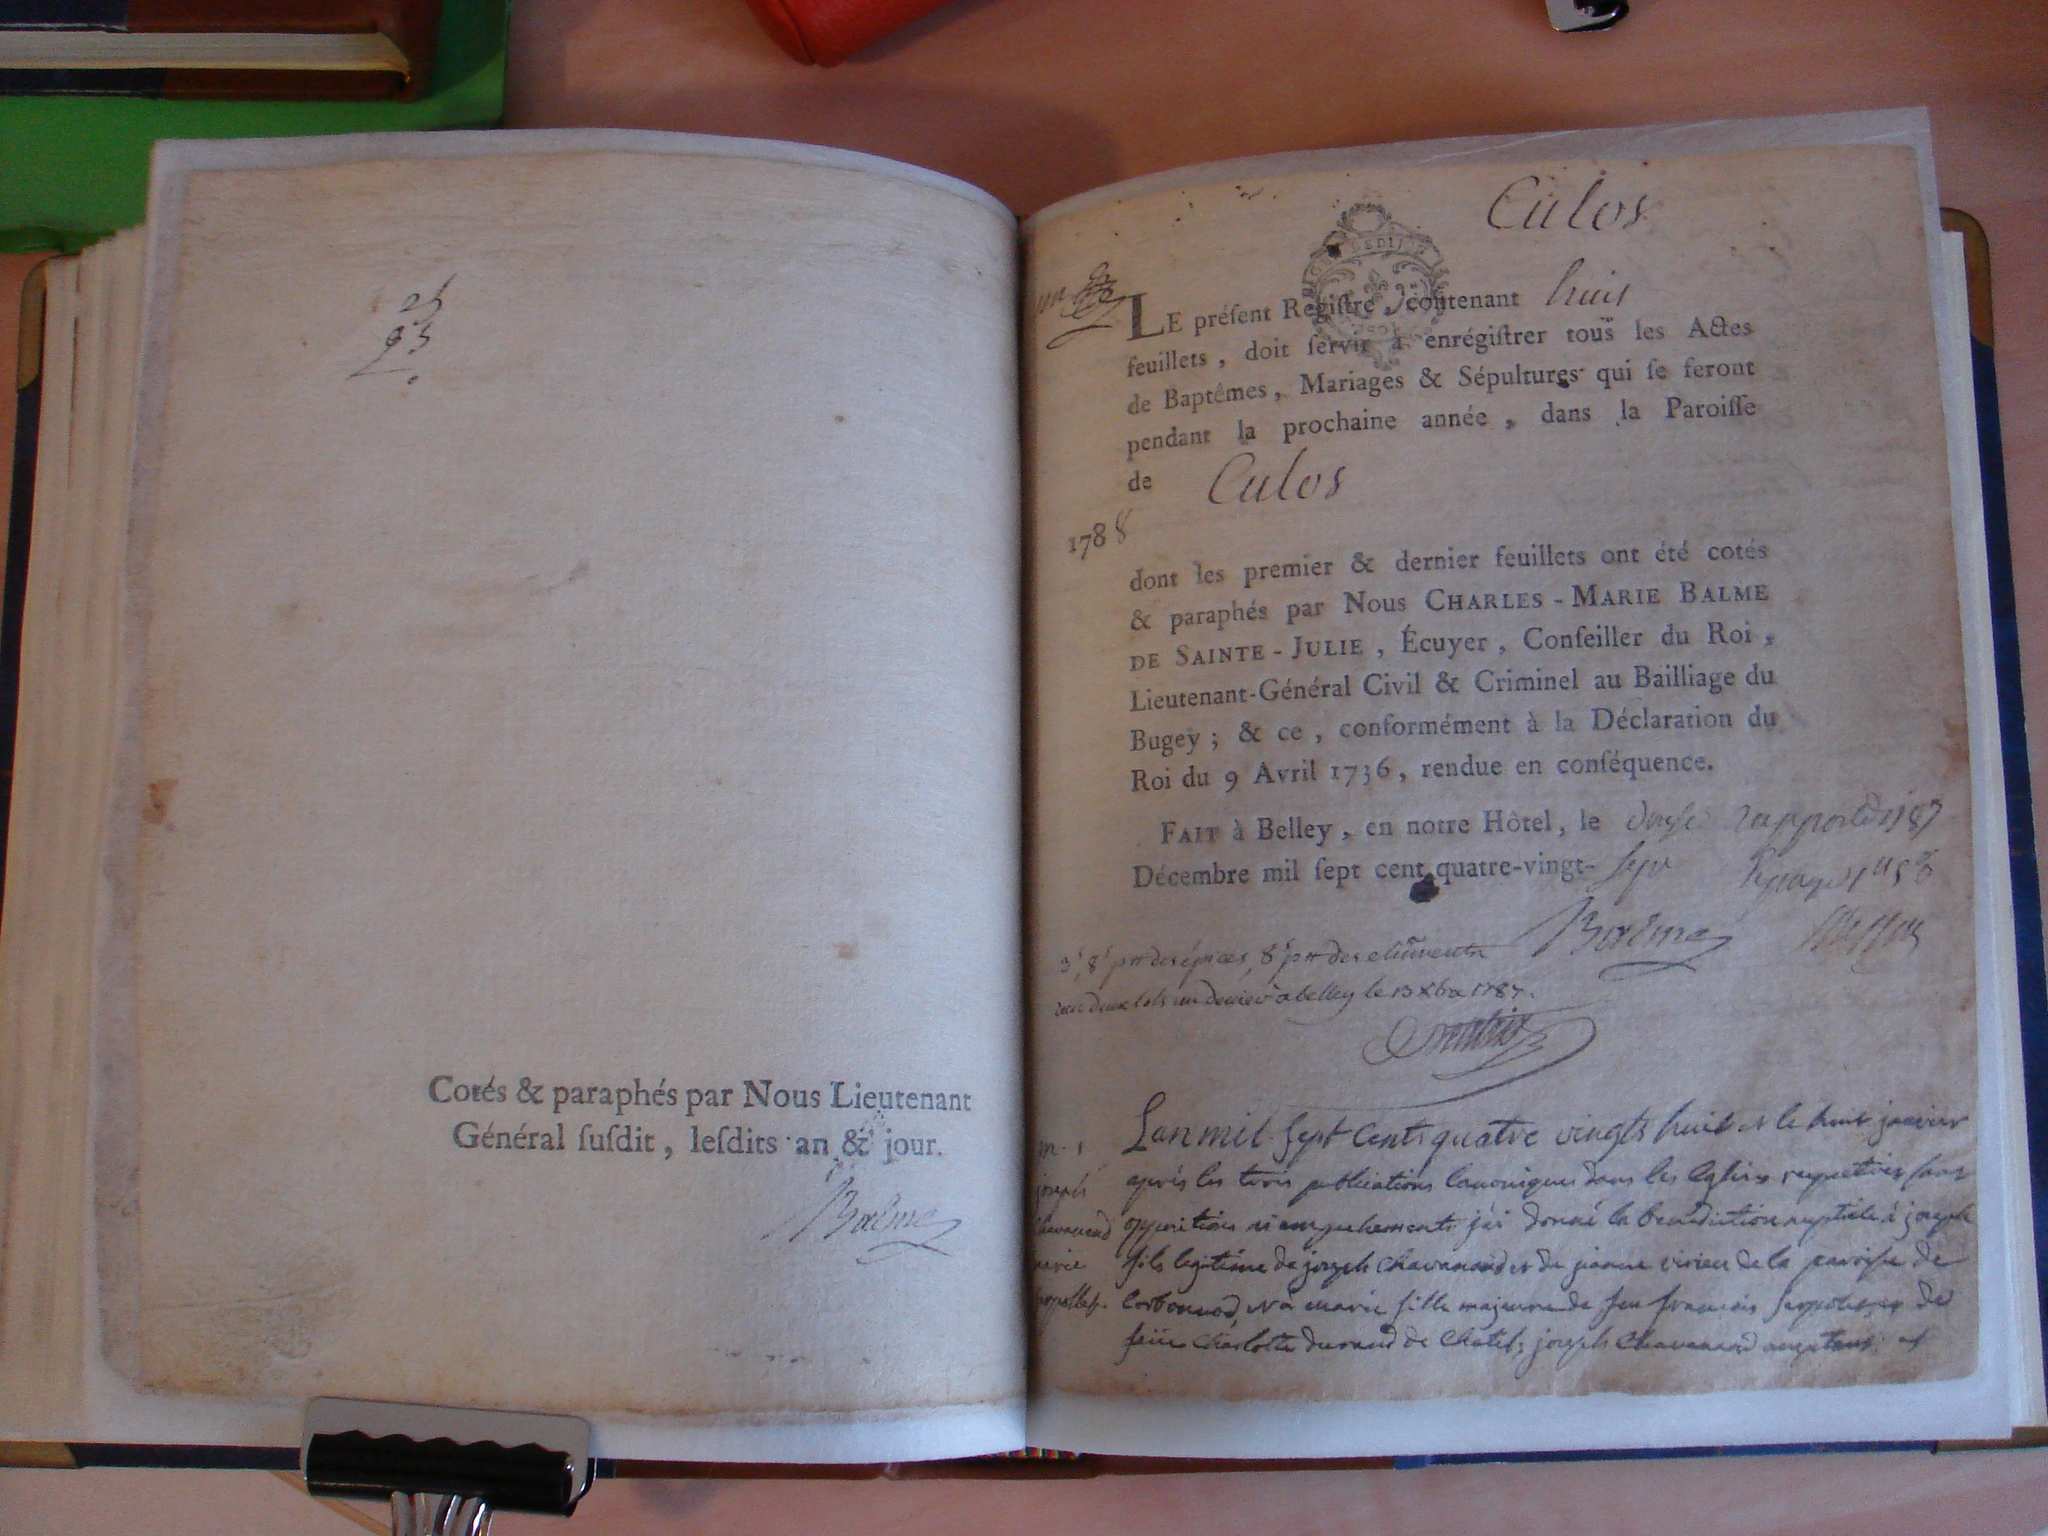 25
Cotés & paraphés par Nous Lieutenant
Général ſuſdit, leſdits an & jour.
Balme
Culos
LE préſent Regiſtre, contenant huit
feuillets, doit ſervir à enrégiſtrer tous les Actes
de Baptêmes, Mariages & Sépultures qui ſe feront
pendant la prochaine année, dans la Paroiſſe
de Culos
1788
dont les premier & dernier feuillets ont été cotés
& paraphés par Nous CHARLES-MARIE BALME
DE SAINTE-JULIE, Écuyer, Conſeiller du Roi,
Lieutenant-Général Civil & Criminel au Bailliage du
Bugey; & ce, conformément à la Déclaration du
Roi du 9 Avril 1736, rendue en conſéquence.
FAIT à Belley, en notre Hôtel, le
Décembre mil ſept cent quatre-vingt- sept
Balme
a belley le 13 Xbre 1787.
m. 1
joseph
chavanend
marie
Lan mil sept cents quatre vingts huit et le huit janvier
après les trois publications canoniques dans les Eglises respectives sans
oppositions ni empechements j'ai donné la benediction nuptiale à joseph
fils legitime de joseph chavanend et de jeanne virieu de la paroisse de
Corbonod, et à marie fille majeure de feu francois serpollet et de
feüe charlotte durand de Chatel; joseph Chavanend